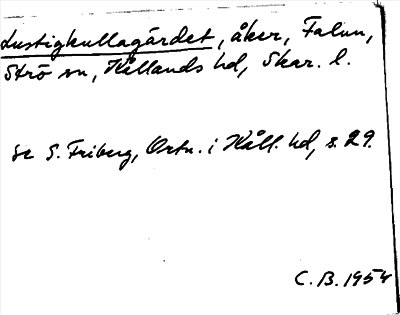 Lustigkullagärdet, åker, Falun,
Strö sn, Kållands hd, Skar. l.
se S. Friberg, Ortn. i Kåll. hd, s. 29.
C. B. 1954